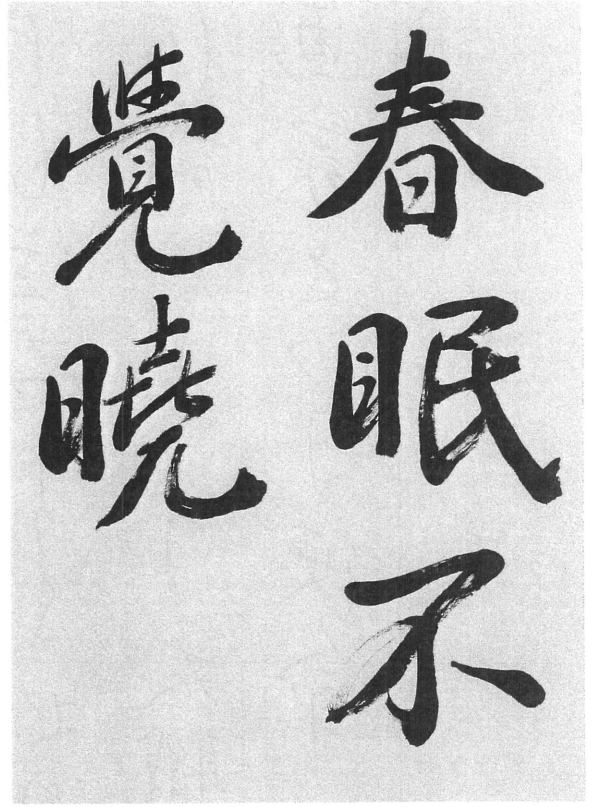 春眠不
覺曉